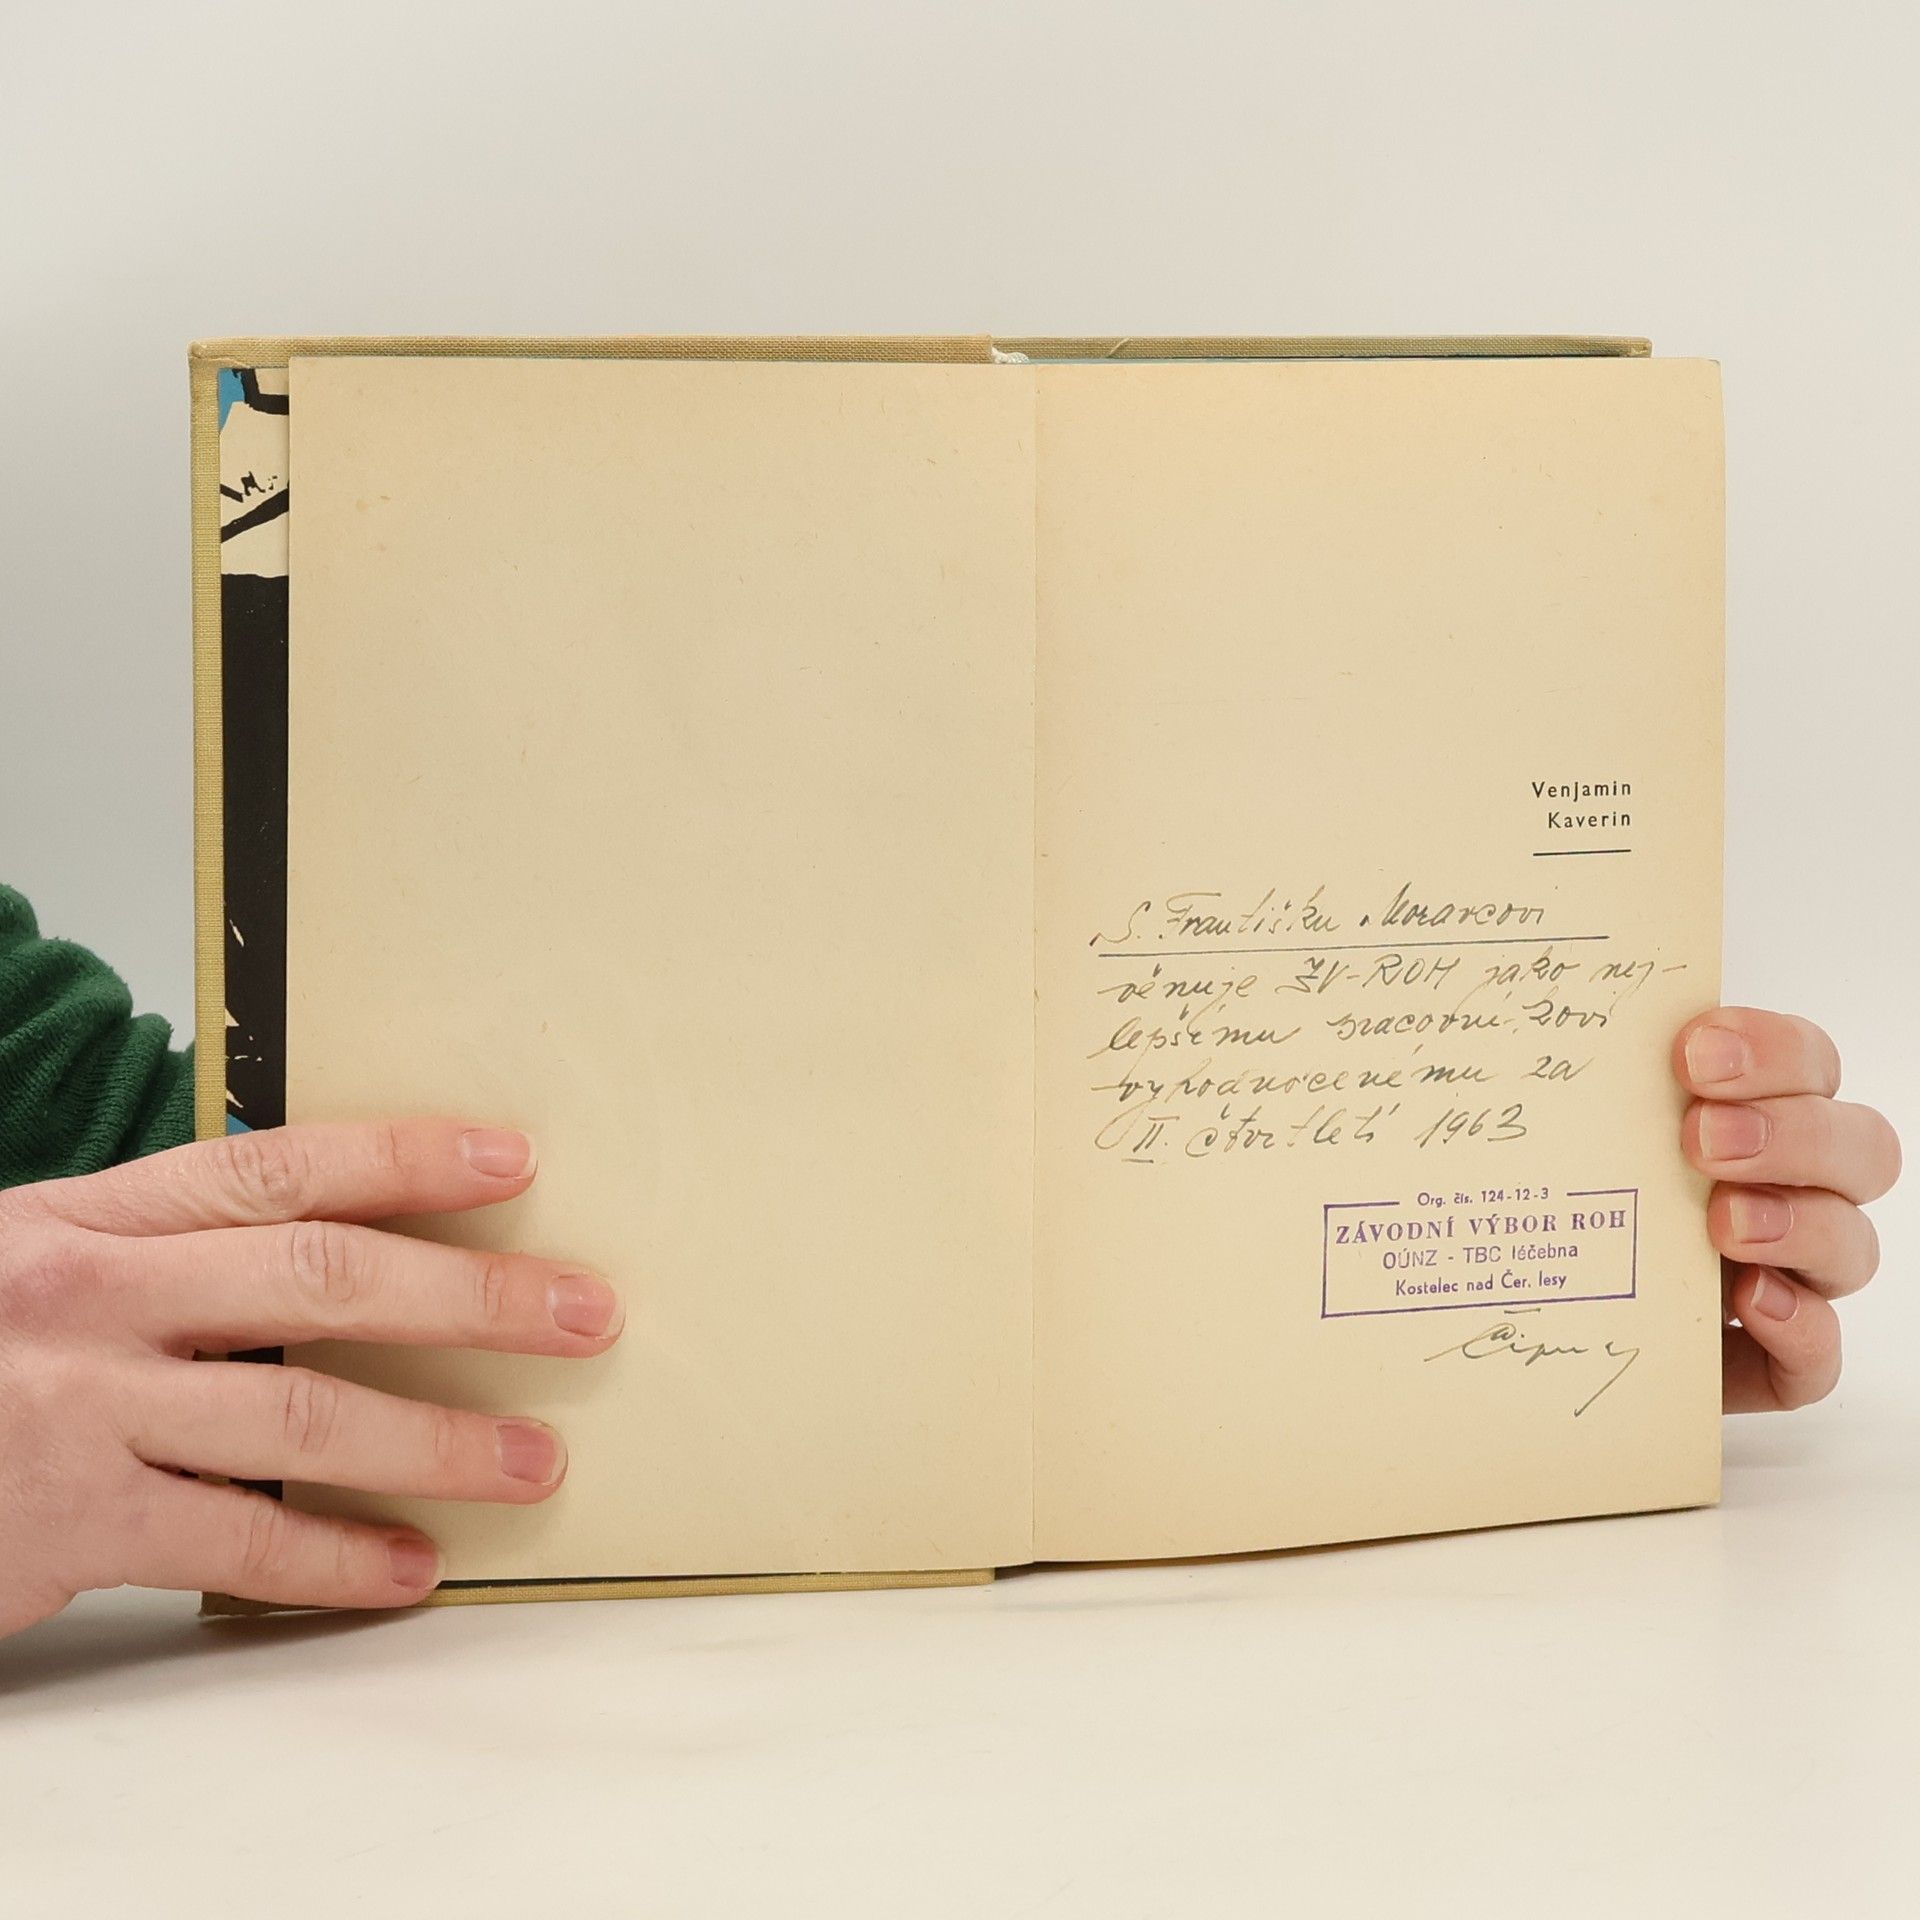 Venjamin
Kaverin
S. Františku Moravcovi
věnuje ZV-ROH jako nej-
lepšímu pracovní-kovi
vyhodnocenému za
II. čtvrtletí 1963
Org. čís. 124-12-3
ZÁVODNÍ VÝBOR ROH
OÚNZ - TBC léčebna
Kostelec nad Čer. lesy